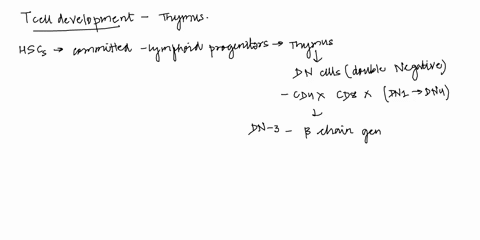 T cell development - Thymus.
HSCs → committed -lymphoid progenitors → Thymus
↓
DN cells (double Negative)
- CD4 x CD8 x (DN1 → DN4)
↓
DN-3 - β chain gen